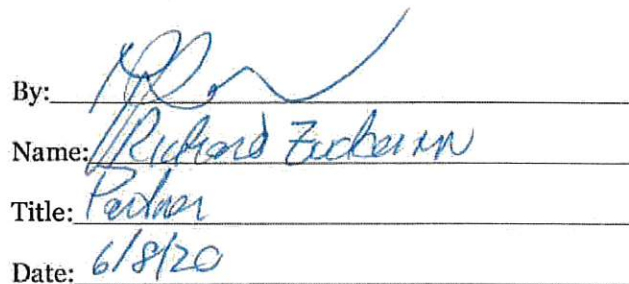 By:
Name: Richard Zuckerman
Title: Partner
Date: 6/8/20